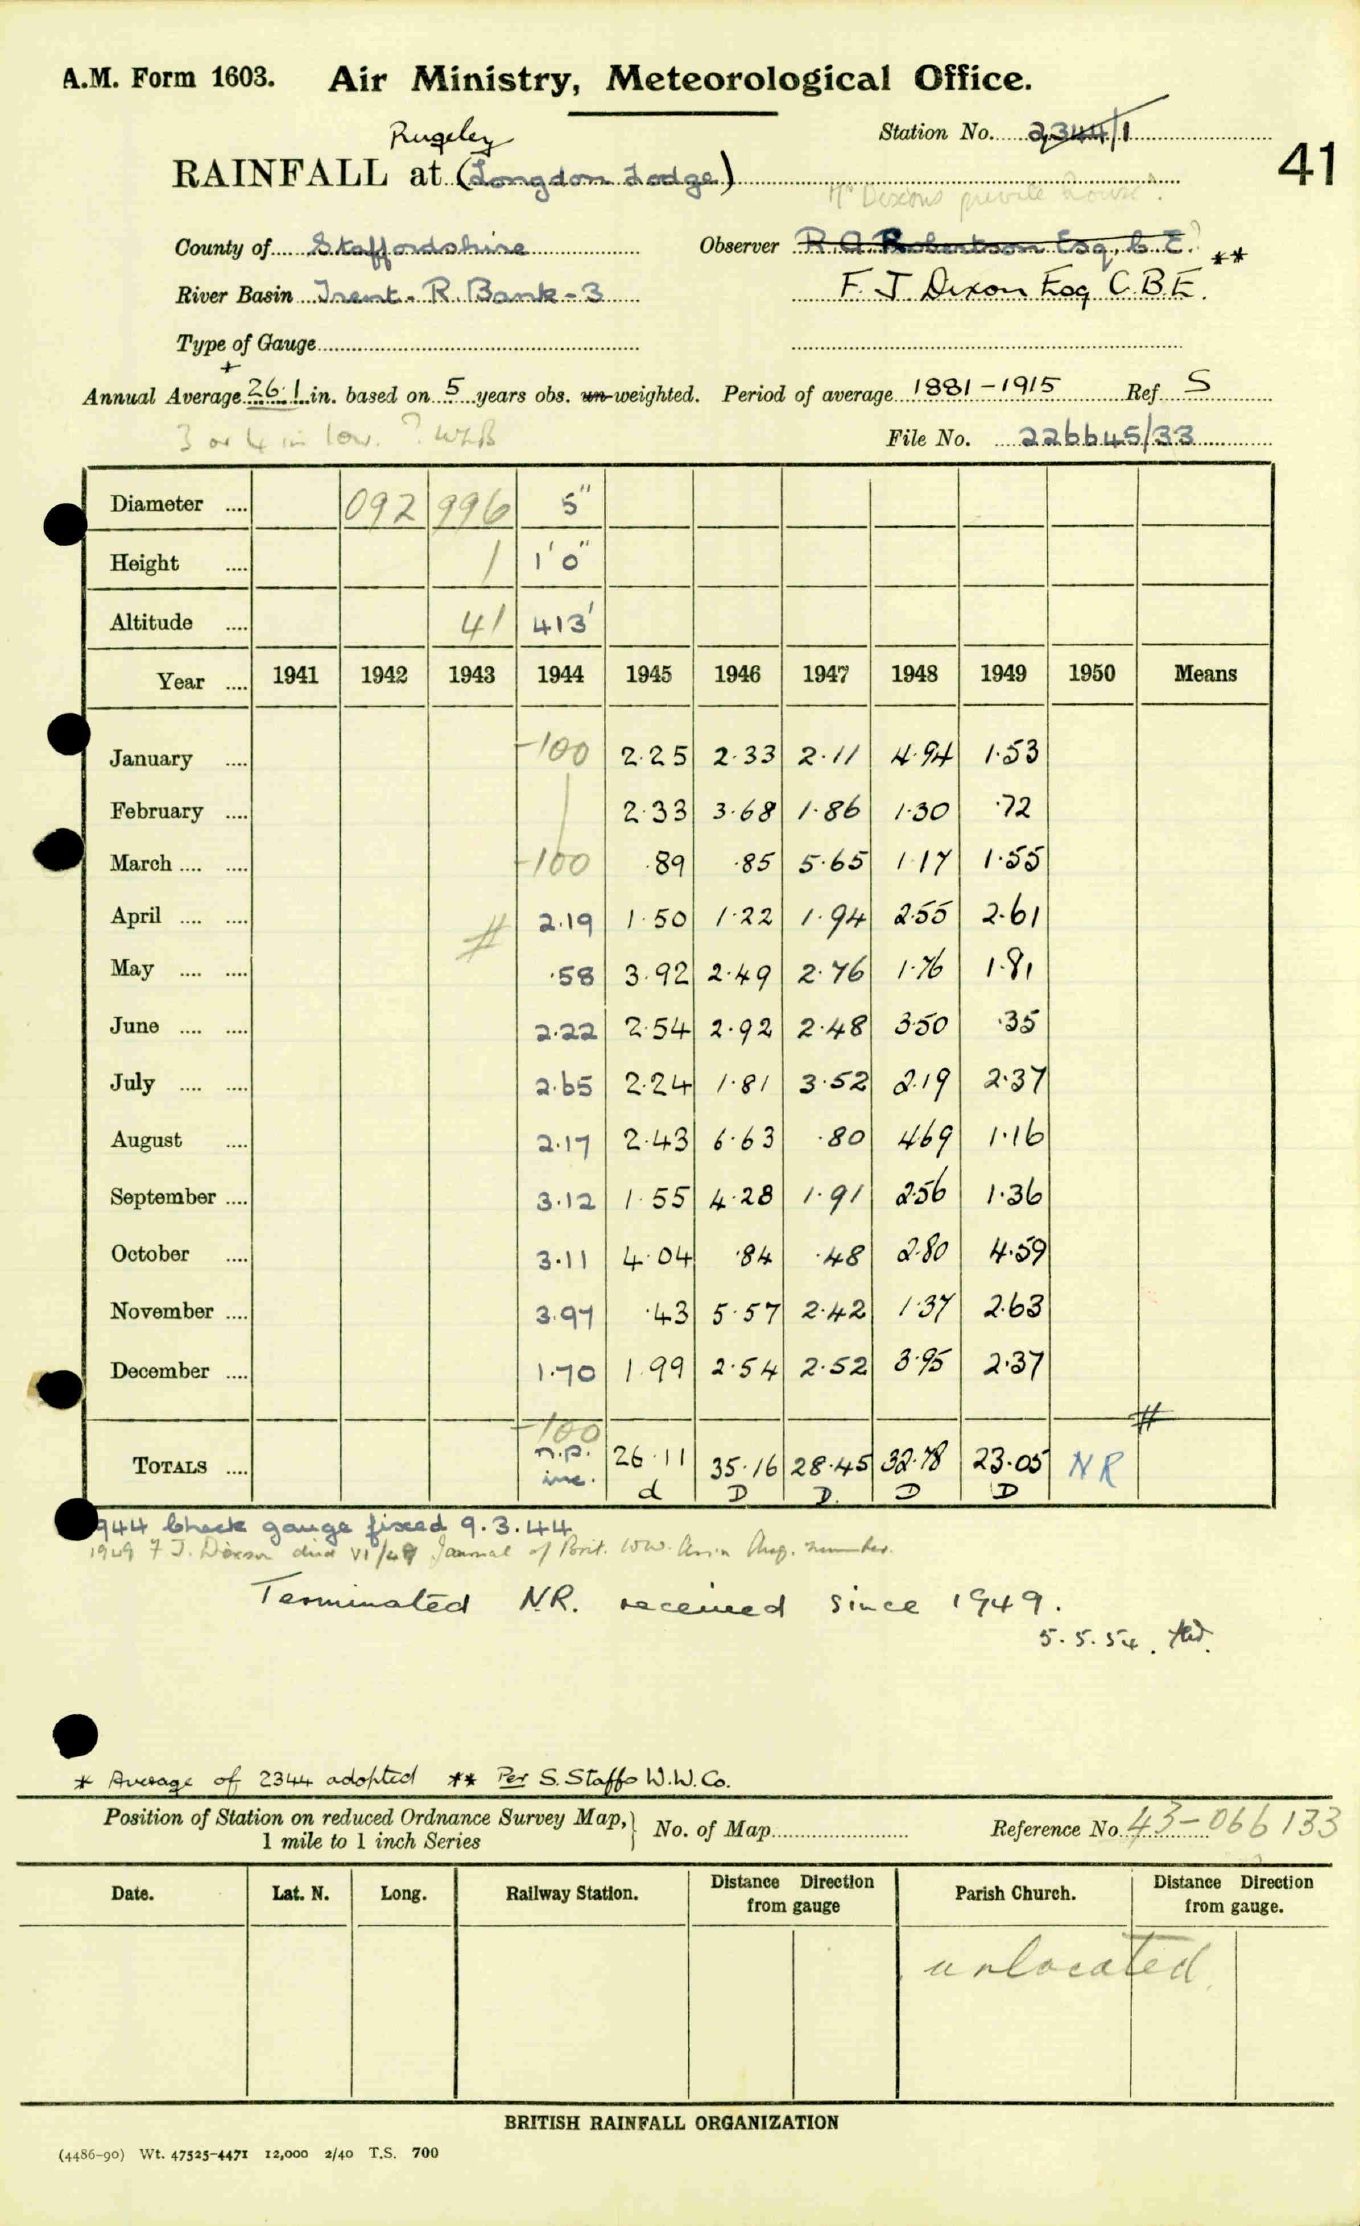 A.M. Form 1603. Air Ministry, Meteorological Office.
Station No. 2344/1
41
Rugeley
RAINFALL at (Longdon Lodge)
Mr Dixons private house?
County of Staffordshire Observer R A Robertson Esq, C.E. ? **
River Basin Trent - R. Bank - 3 F. J. Dixon Esq C.B.E.
Type of Gauge
*
Annual Average 26.1 in. based on 5 years obs. un-weighted. Period of average 1881-1915 Ref. S
3 or 4 in low. ? WLB File No. 226645/33
Diameter .... 092 996 5"
Height .... 1 1' 0"
Altitude .... 41 413'
Year .... 1941 1942 1943 1944 1945 1946 1947 1948 1949 1950 Means
January .... -100 2.25 2.33 2.11 4.94 1.53
February .... 2.33 3.68 1.86 1.30 .72
March .... .... -100 .89 .85 5.65 1.17 1.55
April .... .... # 2.19 1.50 1.22 1.94 2.55 2.61
May .... .... .58 3.92 2.49 2.76 1.76 1.81
June .... .... 2.22 2.54 2.92 2.48 3.50 .35
July .... .... 2.65 2.24 1.81 3.52 2.19 2.37
August .... 2.17 2.43 6.63 .80 4.69 1.16
September .... 3.12 1.55 4.28 1.91 2.56 1.36
October .... 3.11 4.04 .84 .48 2.80 4.59
November .... 3.97 .43 5.57 2.42 1.37 2.63
December .... 1.70 1.99 2.54 2.52 3.95 2.37
-100 #
TOTALS .... n.p. inc. 26.11 35.16 28.45 32.78 23.05 NR
d D D. D D
1944 Check gauge fixed 9.3.44
1949 F J. Dixon died VI/49 Journal of Brit. WW. Assn Aug. number.
Terminated N.R. received since 1949.
5.5.54.
* Average of 2344 adopted ** Per S. Staffs W.W. Co.
Position of Station on reduced Ordnance Survey Map, 1 mile to 1 inch Series } No. of Map Reference No. 43-066133
Date. Lat. N. Long. Railway Station. Distance Direction from gauge Parish Church. Distance Direction from gauge.
unlocated.
BRITISH RAINFALL ORGANIZATION
(4486-90) Wt. 47525-4471 12,000 2/40 T.S. 700